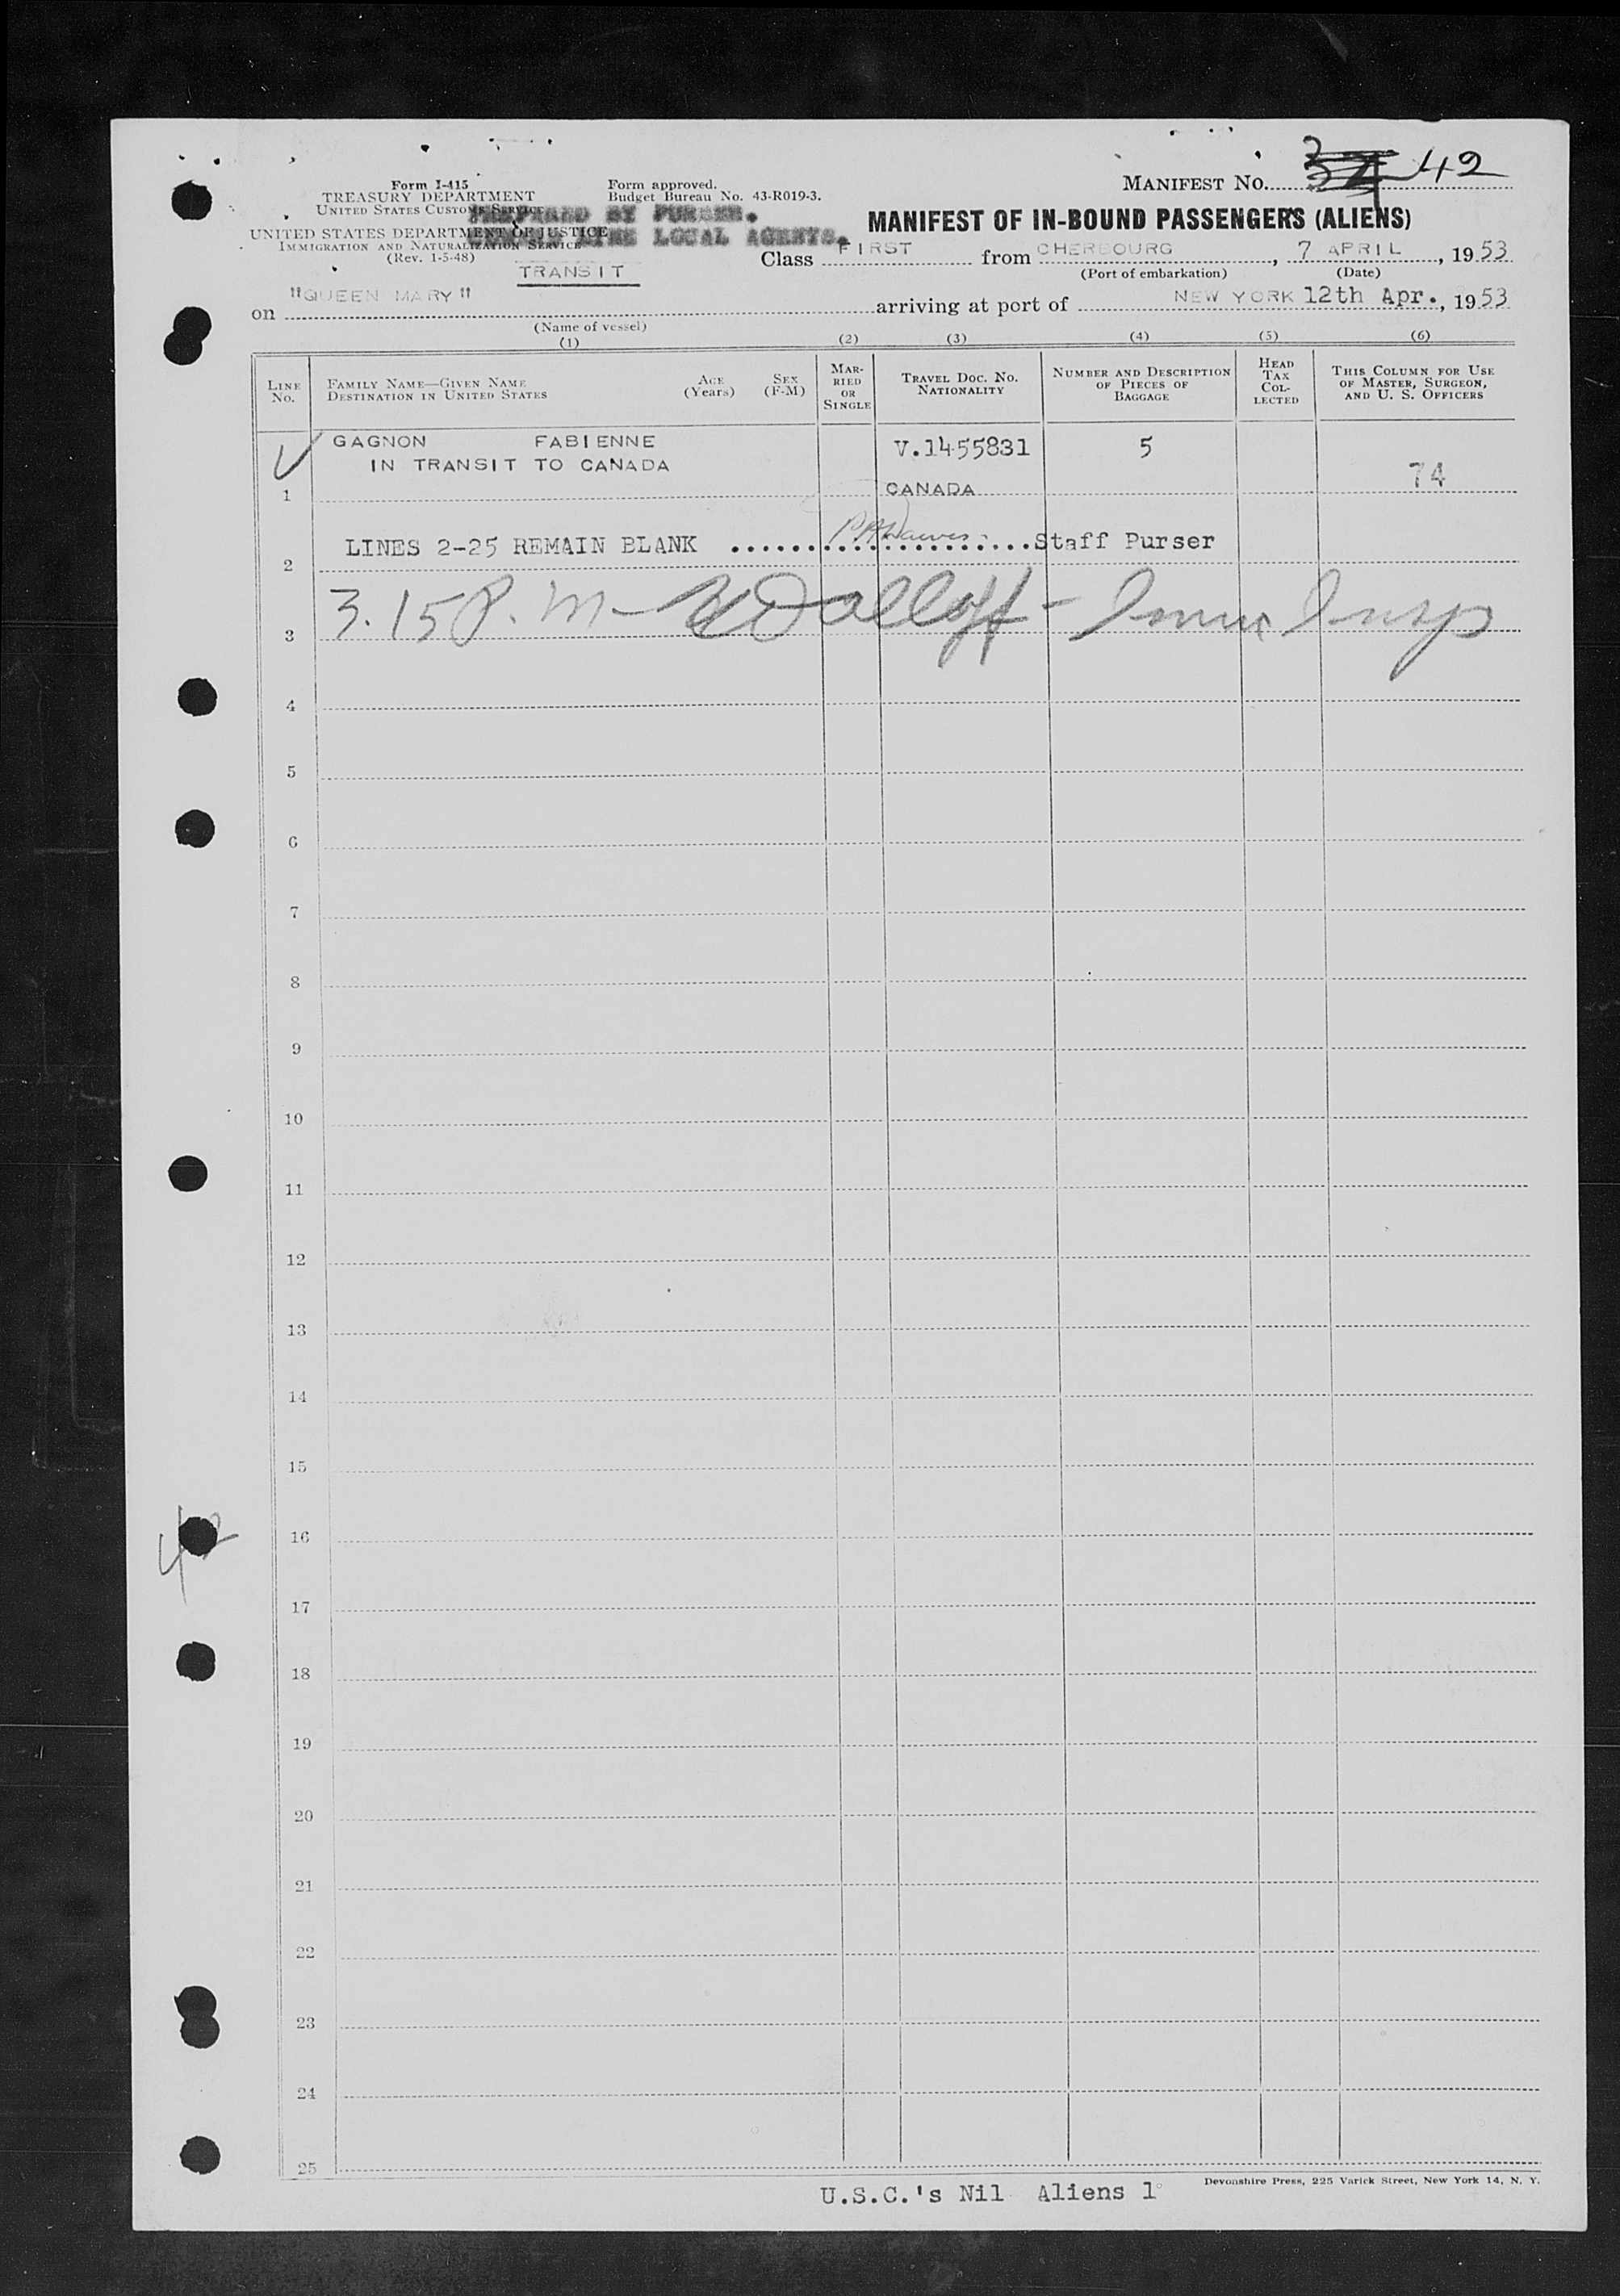 Form I-415
TREASURY DEPARTMENT
UNITED STATES CUSTOMS SERVICE
UNITED STATES DEPARTMENT OF JUSTICE
IMMIGRATION AND NATURALIZATION SERVICE
(Rev. 1-5-48)
Form approved.
Budget Bureau No. 43-R019-3.
PREPARED BY PURSER.
LINE LOCAL AGENTS.
TRANSIT
MANIFEST NO. 42
MANIFEST OF IN-BOUND PASSENGERS (ALIENS)
Class FIRST from CHERBOURG, 7 APRIL, 1953
(Port of embarkation) (Date)
on "QUEEN MARY" arriving at port of NEW YORK 12th Apr., 1953
(Name of vessel)
(1) (2) (3) (4) (5) (6)
LINE NO.
FAMILY NAME—GIVEN NAME
DESTINATION IN UNITED STATES
AGE (Years)
SEX (F-M)
MARRIED OR SINGLE
TRAVEL DOC. NO. NATIONALITY
NUMBER AND DESCRIPTION OF PIECES OF BAGGAGE
HEAD TAX COLLECTED
THIS COLUMN FOR USE OF MASTER, SURGEON, AND U. S. OFFICERS
GAGNON FABIENNE V.1455831 5
IN TRANSIT TO CANADA 74
1 CANADA
2 LINES 2-25 REMAIN BLANK ........................Staff Purser
3 3.15 P.M - Dalloff - Imm Insp
4
5
6
7
8
9
10
11
12
13
14
15
42
16
17
18
19
20
21
22
23
24
25
Devonshire Press, 225 Varick Street, New York 14, N. Y.
U.S.C.'s Nil Aliens 1